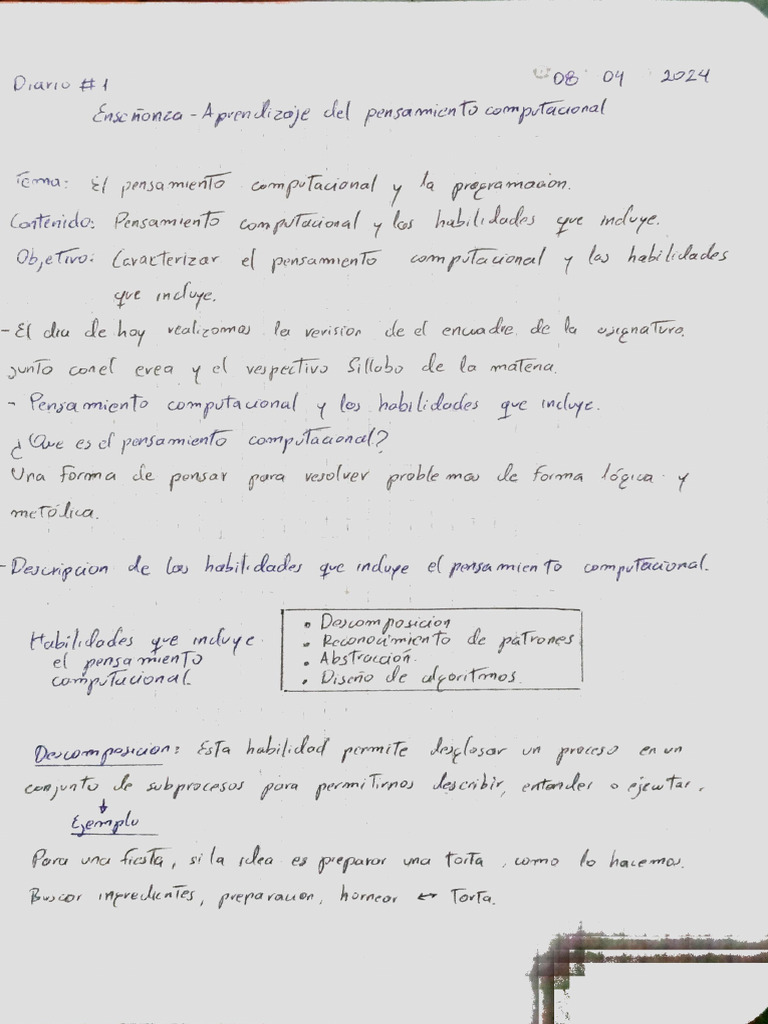 Diario #1
08 04 2024
Enseñanza - Aprendizaje del pensamiento computacional
Tema: El pensamiento computacional y la programación.
Contenido: Pensamiento computacional y las habilidades que incluye.
Objetivo: Caracterizar el pensamiento computacional y las habilidades
que incluye.
- El dia de hoy realizamos la revision de el encuadre de la asignatura.
junto con el evea y el respectivo Sillabo de la materia.
- Pensamiento computacional y las habilidades que incluye.
¿Que es el pensamiento computacional?
Una forma de pensar para resolver problemas de forma lógica y
metólica.
- Descripcion de las habilidades que incluye el pensamiento computacional.
Habilidades que incluye
el pensamiento
computacional.
• Descomposicion
• Reconocimiento de patrones
• Abstracción.
• Diseño de algoritmos.
Descomposicion: Esta habilidad permite desglosar un proceso en un
conjunto de subprocesos para permitirnos describir, entender o ejecutar.
↓
Ejemplo
Para una fiesta, si la idea es preparar una torta, como lo hacemos.
Buscar ingredientes, preparacion, hornear ← Torta.